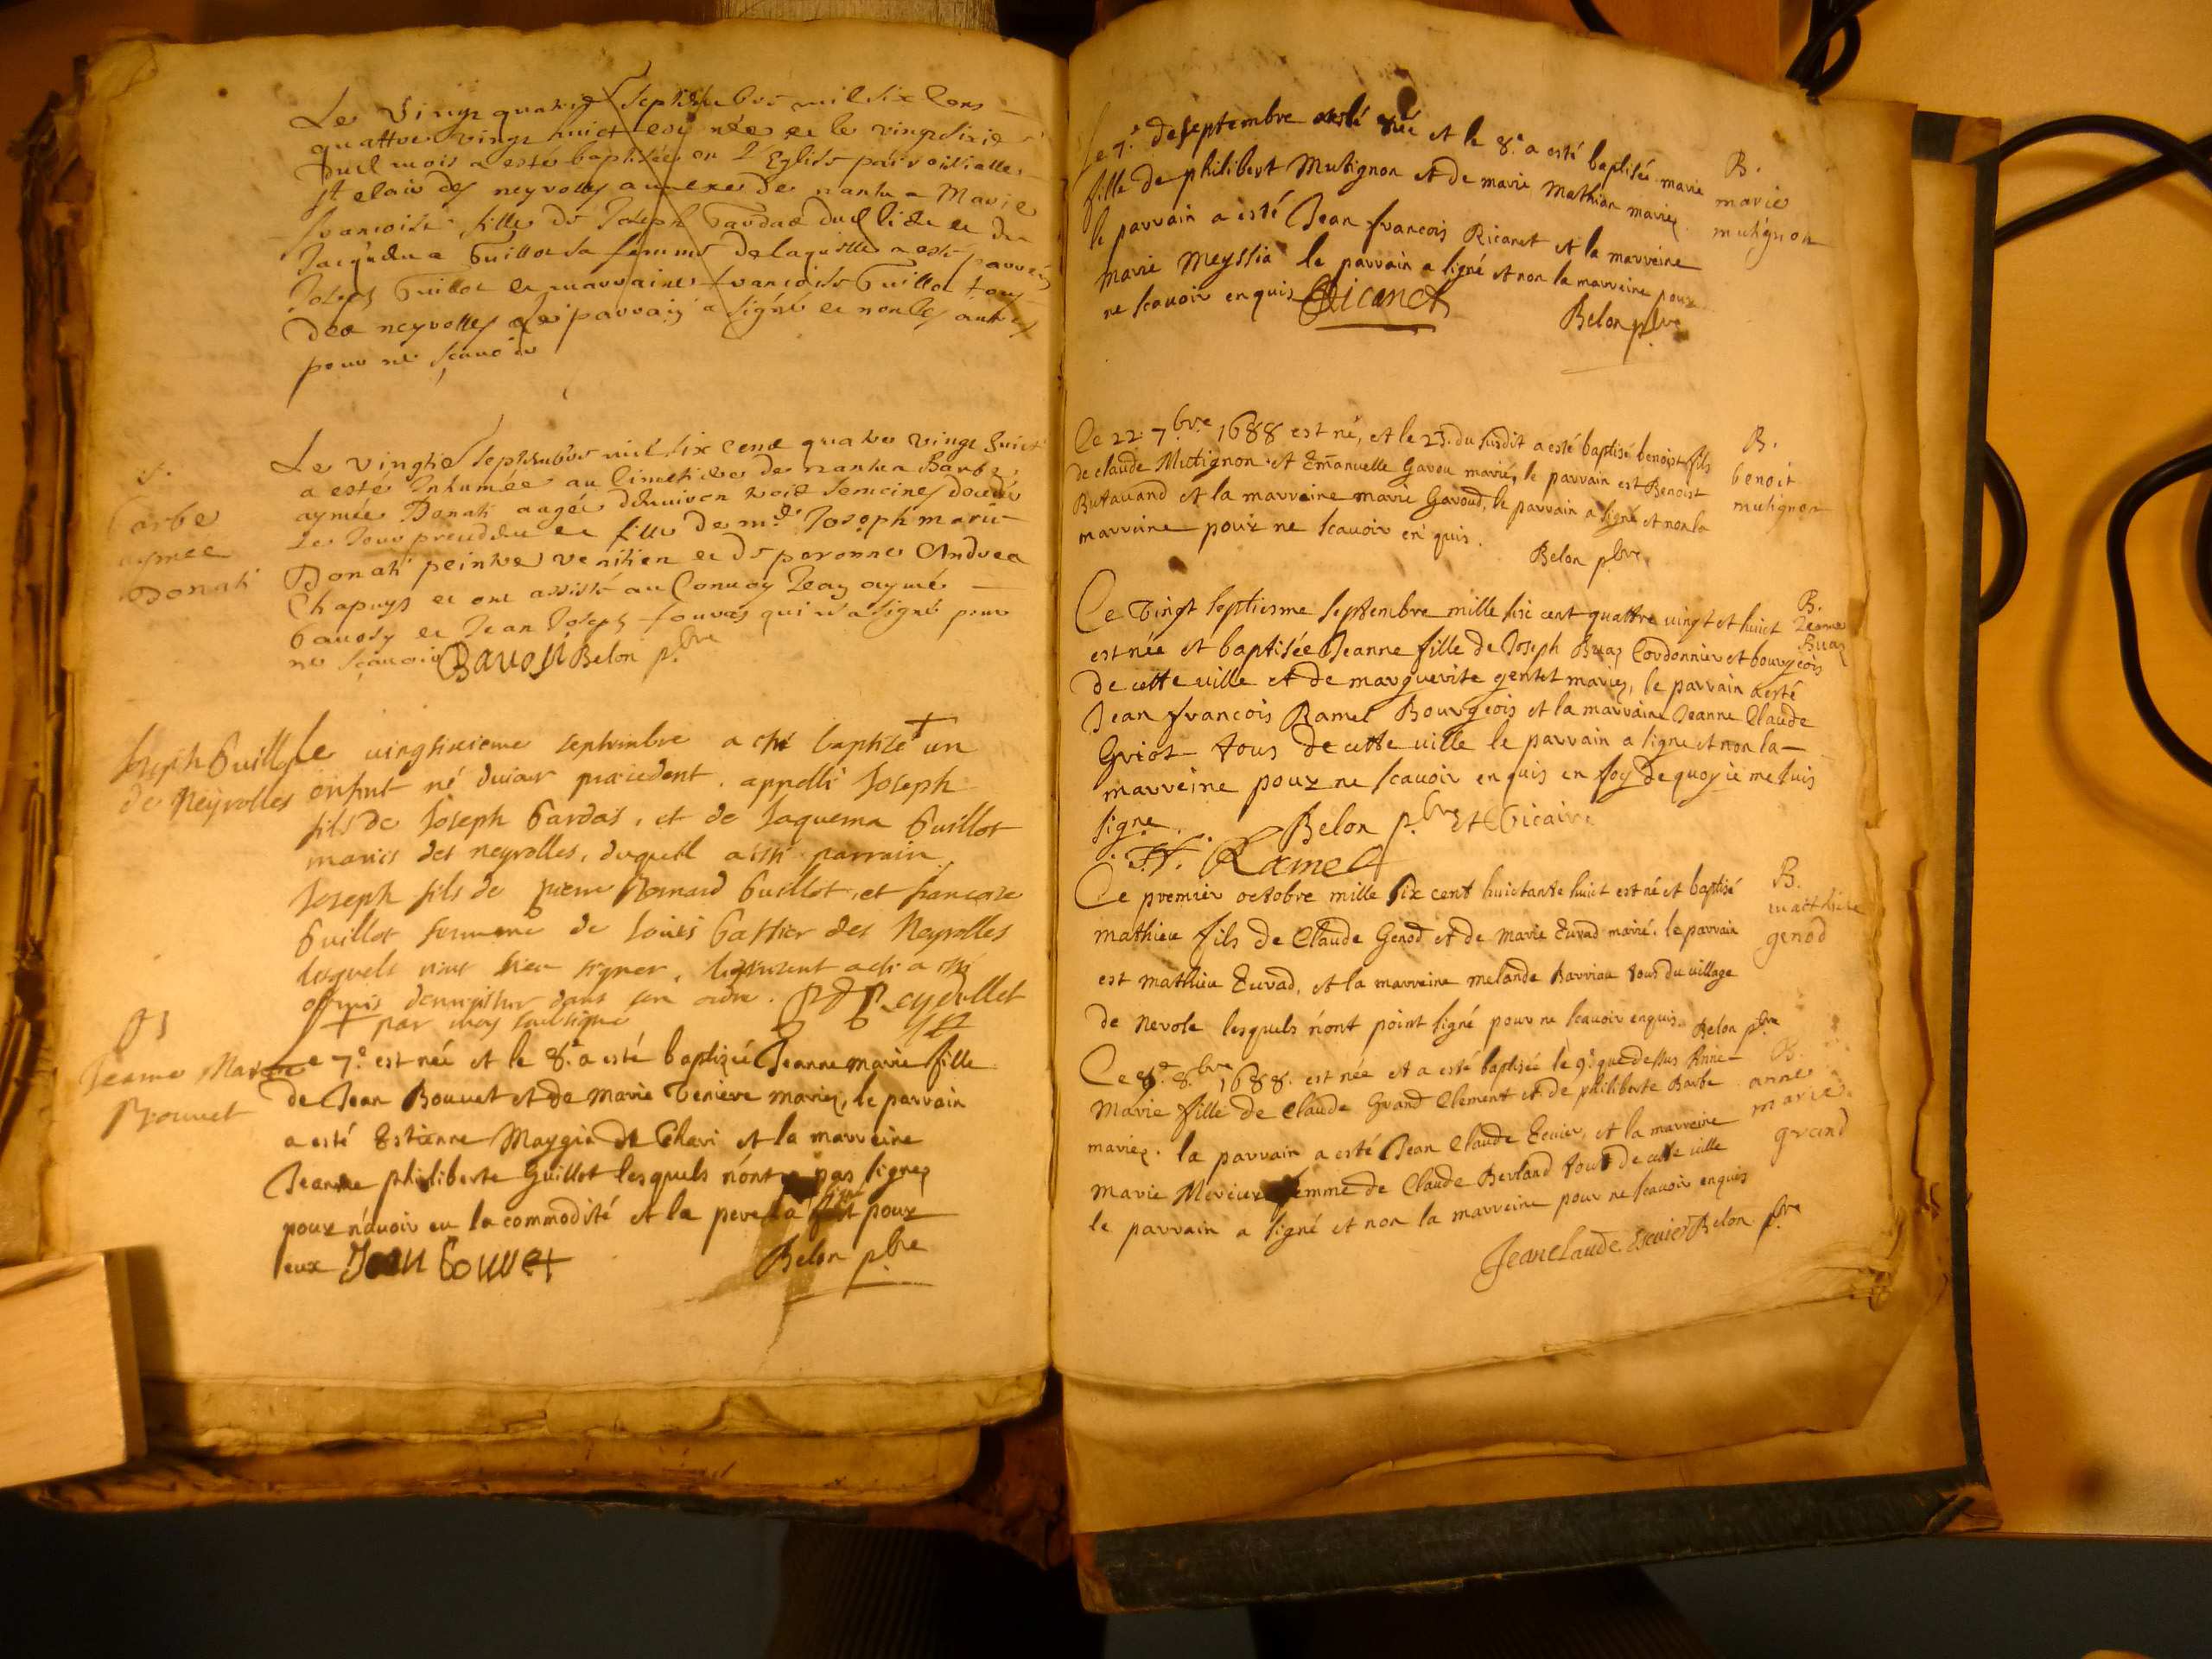 Le vingt quatrie septembre mil six cens
quattre vingt huict est née et le vingt sixie
dud mois a estée baptisée en l'Eglise parroissialle
St clair des neyrolles annexe de nantua Marie
francoise fille de Joseph Gardad dud lieu et de
Jacquema Guillot sa femme de laquelle a esté parrein
Joseph Guillot et marraine francoise Guillot tous
des neyrolles le parrain a signé et non les autres
pour ne scavoir
S.
barbe
aymee
Donati
Le vingtie septembre mil six cent quatre vingt huict
a estée Inhumée au Cimetiere de nantua Barbe
aymée Donati augée d'environ trois semeines decedée
le Jour precedent et fille de mre Joseph marie
Donati peintre venitien et de peronne Andrea
Chapuys et ont assisté au Convoy Jean aymé
bavosy et Jean Joseph fouras qui n'a signé pour
ne scavoir Bavosi Belon pbre
Joseph Guillot
de Neyrolles
Le vingtsixieme septembre a esté baptizé + un
enfant né du jour precedent, appellé Joseph
fils de Joseph Gardas, et de Jaquema Guillot
mariés des neyrolles, duquel a esté parrain
Joseph fils de pierre Bernard Guillot, et francoise
Guillot femme de Louis Gattier des Neyrolles
lesquels n'ont sceu signer, le present acte a esté
obmis d'enregistrer dans son ordre. Reydellet
+ par moy soubsigné
B
Jeanne Marie
Bouvet
Le 7e est née et le 8e a esté baptizée Jeanne marie fille
de Jean Bouvet et de Marie Teniere mariez, le parrain
a esté Estienne Maygia de Chari et la marreine
Jeanne philiberte Guillot lesquels n'ont pas signez
pour n'avoir eu la commodité et le pere l'a fait pour
eux Jean bouvet Belon pbre
Le 7e de septembre a esté née et le 8e a esté baptisée marie
fille de philibert Mutignon et de marie Mathian mariez
le parrain a esté Jean francois Ricanet et la marreine
Marie Meyssia le parrain a signé et non la marreine pour
ne scavoir enquis Ricanet
Belon pbre
B.
marie
mutignon
Ce 22 7bre 1688 est né, et le 23 du susdit a esté baptisé benoist fils
de claude Mutignon et Emanuelle Gavou mariés, le parrain est Benoist
Butavand et la marreine marie Gavoud, le parrain a signé et non la
marreine pour ne scavoir enquis.
Belon pbre
B.
benoit
mutignon
Ce vingt septiesme septembre mille six cent quattre vingt et huict
est née et baptisée Jeanne fille de Joseph Buaz Cordonnier et bourgeois
de cette ville et de marguerite gentet mariez, le parrain a esté
Jean francois Ramel Bourgeois et la marraine Jeanne Claude
Griot tous de cette ville le parrain a signe et non la
marreine pour ne scavoir enquis en foy de quoy ie me suis
signe. Belon pbre et Vicaire
J.f. Ramel
B.
Jeanne
Buaz
Ce premier octobre mille six cent huictante huict est né et baptisé
mathieu fils de Claude Genod et de Marie Euvad marié. le parrain
est mathieu Euvad, et la marreine melande Barriau tous du village
de Nerole lesquels n'ont point signé pour ne scavoir enquis. Belon pbre
B.
matthieu
genod
Ce 9e 8bre 1688. est née et a esté baptisée le 9e que dessus Anne
Marie fille de Claude Grand Clement et de philiberte Barbe
mariez. la parrain a esté Jean Claude Evuier, et la marreine
Marie Mercier femme de Claude Berland tous de cette ville
le parrain a signé et non la marreine pour ne scavoir enquis
Jeanclaude Esevier Belon pbre
B.
anne
marie
grand